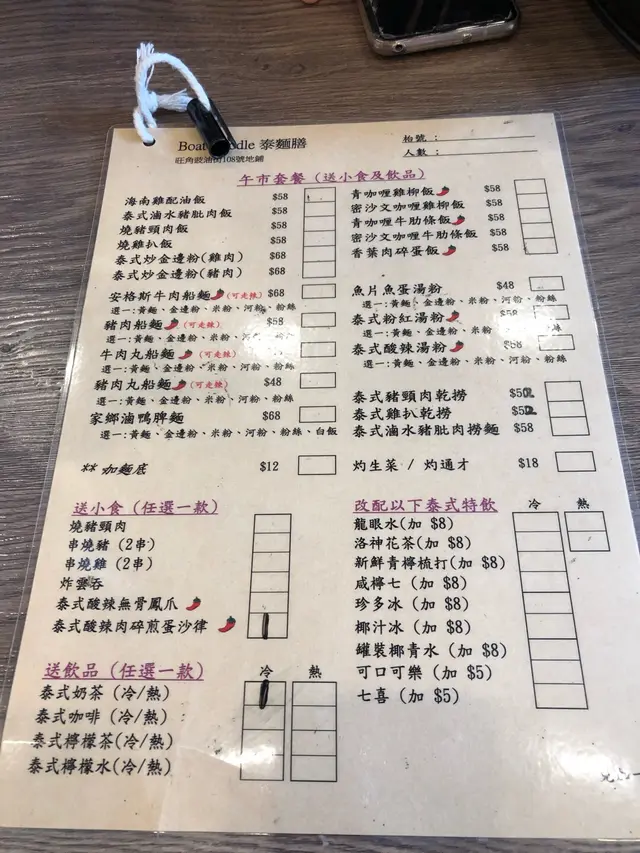 Boat 泰麵膳
旺角豉油街108號地鋪
枱號：
人數：
午市套餐 (送小食及飲品)
海南雞配油飯 $58
泰式滷水豬肶肉飯 $58
燒豬頸肉飯 $58
燒雞扒飯 $58
泰式炒金邊粉(雞肉) $68
泰式炒金邊粉(豬肉) $68
安格斯牛肉船麵 (可走辣) $68
選一:黃麵、金邊粉、米粉、河粉、粉絲
豬肉船麵 (可走辣) $58
選一:黃麵、金邊粉、米粉、河粉、粉絲
牛肉丸船麵 (可走辣)
選一:黃麵、金邊粉、米粉、河粉、粉絲
豬肉丸船麵 (可走辣) $48
選一:黃麵、金邊粉、米粉、河粉、粉絲
家鄉滷鴨脾麵 $68
選一:黃麵、金邊粉、米粉、河粉、粉絲、白飯
** 加麵底 $12
青咖喱雞柳飯 $58
密沙文咖喱雞柳飯 $58
青咖喱牛肋條飯 $58
密沙文咖喱牛肋條飯 $58
香葉肉碎蛋飯 $58
魚片魚蛋湯粉 $48
選一:黃麵、金邊粉、米粉、河粉、粉絲
泰式粉紅湯粉 $58
選一:黃麵、金邊粉、米粉 粉絲
泰式酸辣湯粉 $68
選一:黃麵、金邊粉、米粉、河粉、粉絲
泰式豬頸肉乾撈 $52
泰式雞扒乾撈 $52
泰式滷水豬肶肉撈麵 $58
灼生菜 / 灼通才 $18
送小食 (任選一款)
燒豬頸肉
串燒豬 (2串)
串燒雞 (2串)
炸雲吞
泰式酸辣無骨鳳爪
泰式酸辣肉碎煎蛋沙律
送飲品 (任選一款) 冷 熱
泰式奶茶 (冷/熱)
泰式咖啡 (冷/熱)
泰式檸檬茶(冷/熱)
泰式檸檬水(冷/熱)
改配以下泰式特飲 冷 熱
龍眼水(加 $8)
洛神花茶(加 $8)
新鮮青檸梳打(加 $8)
咸檸七 (加 $8)
珍多冰 (加 $8)
椰汁冰 (加 $8)
罐裝椰青水 (加 $8)
可口可樂 (加 $5)
七喜 (加 $5)